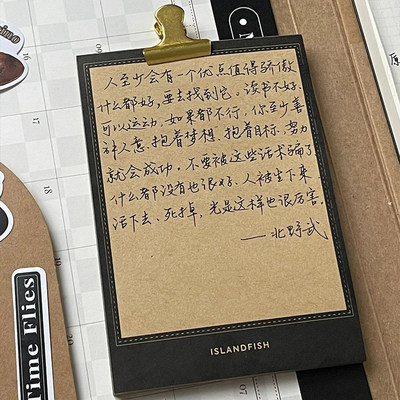 人至少会有一个优点值得骄傲
什么都好,要去找到它。读书不好,
可以运动,如果都不行,你至少善
解人意.抱着梦想、抱着目标、努力
就会成功,不要被这些话术骗了
什么都没有也很好.人被生下来
活下去、死掉,光是这样也很厉害.
——北野武
ISLANDFISH
Time Flies